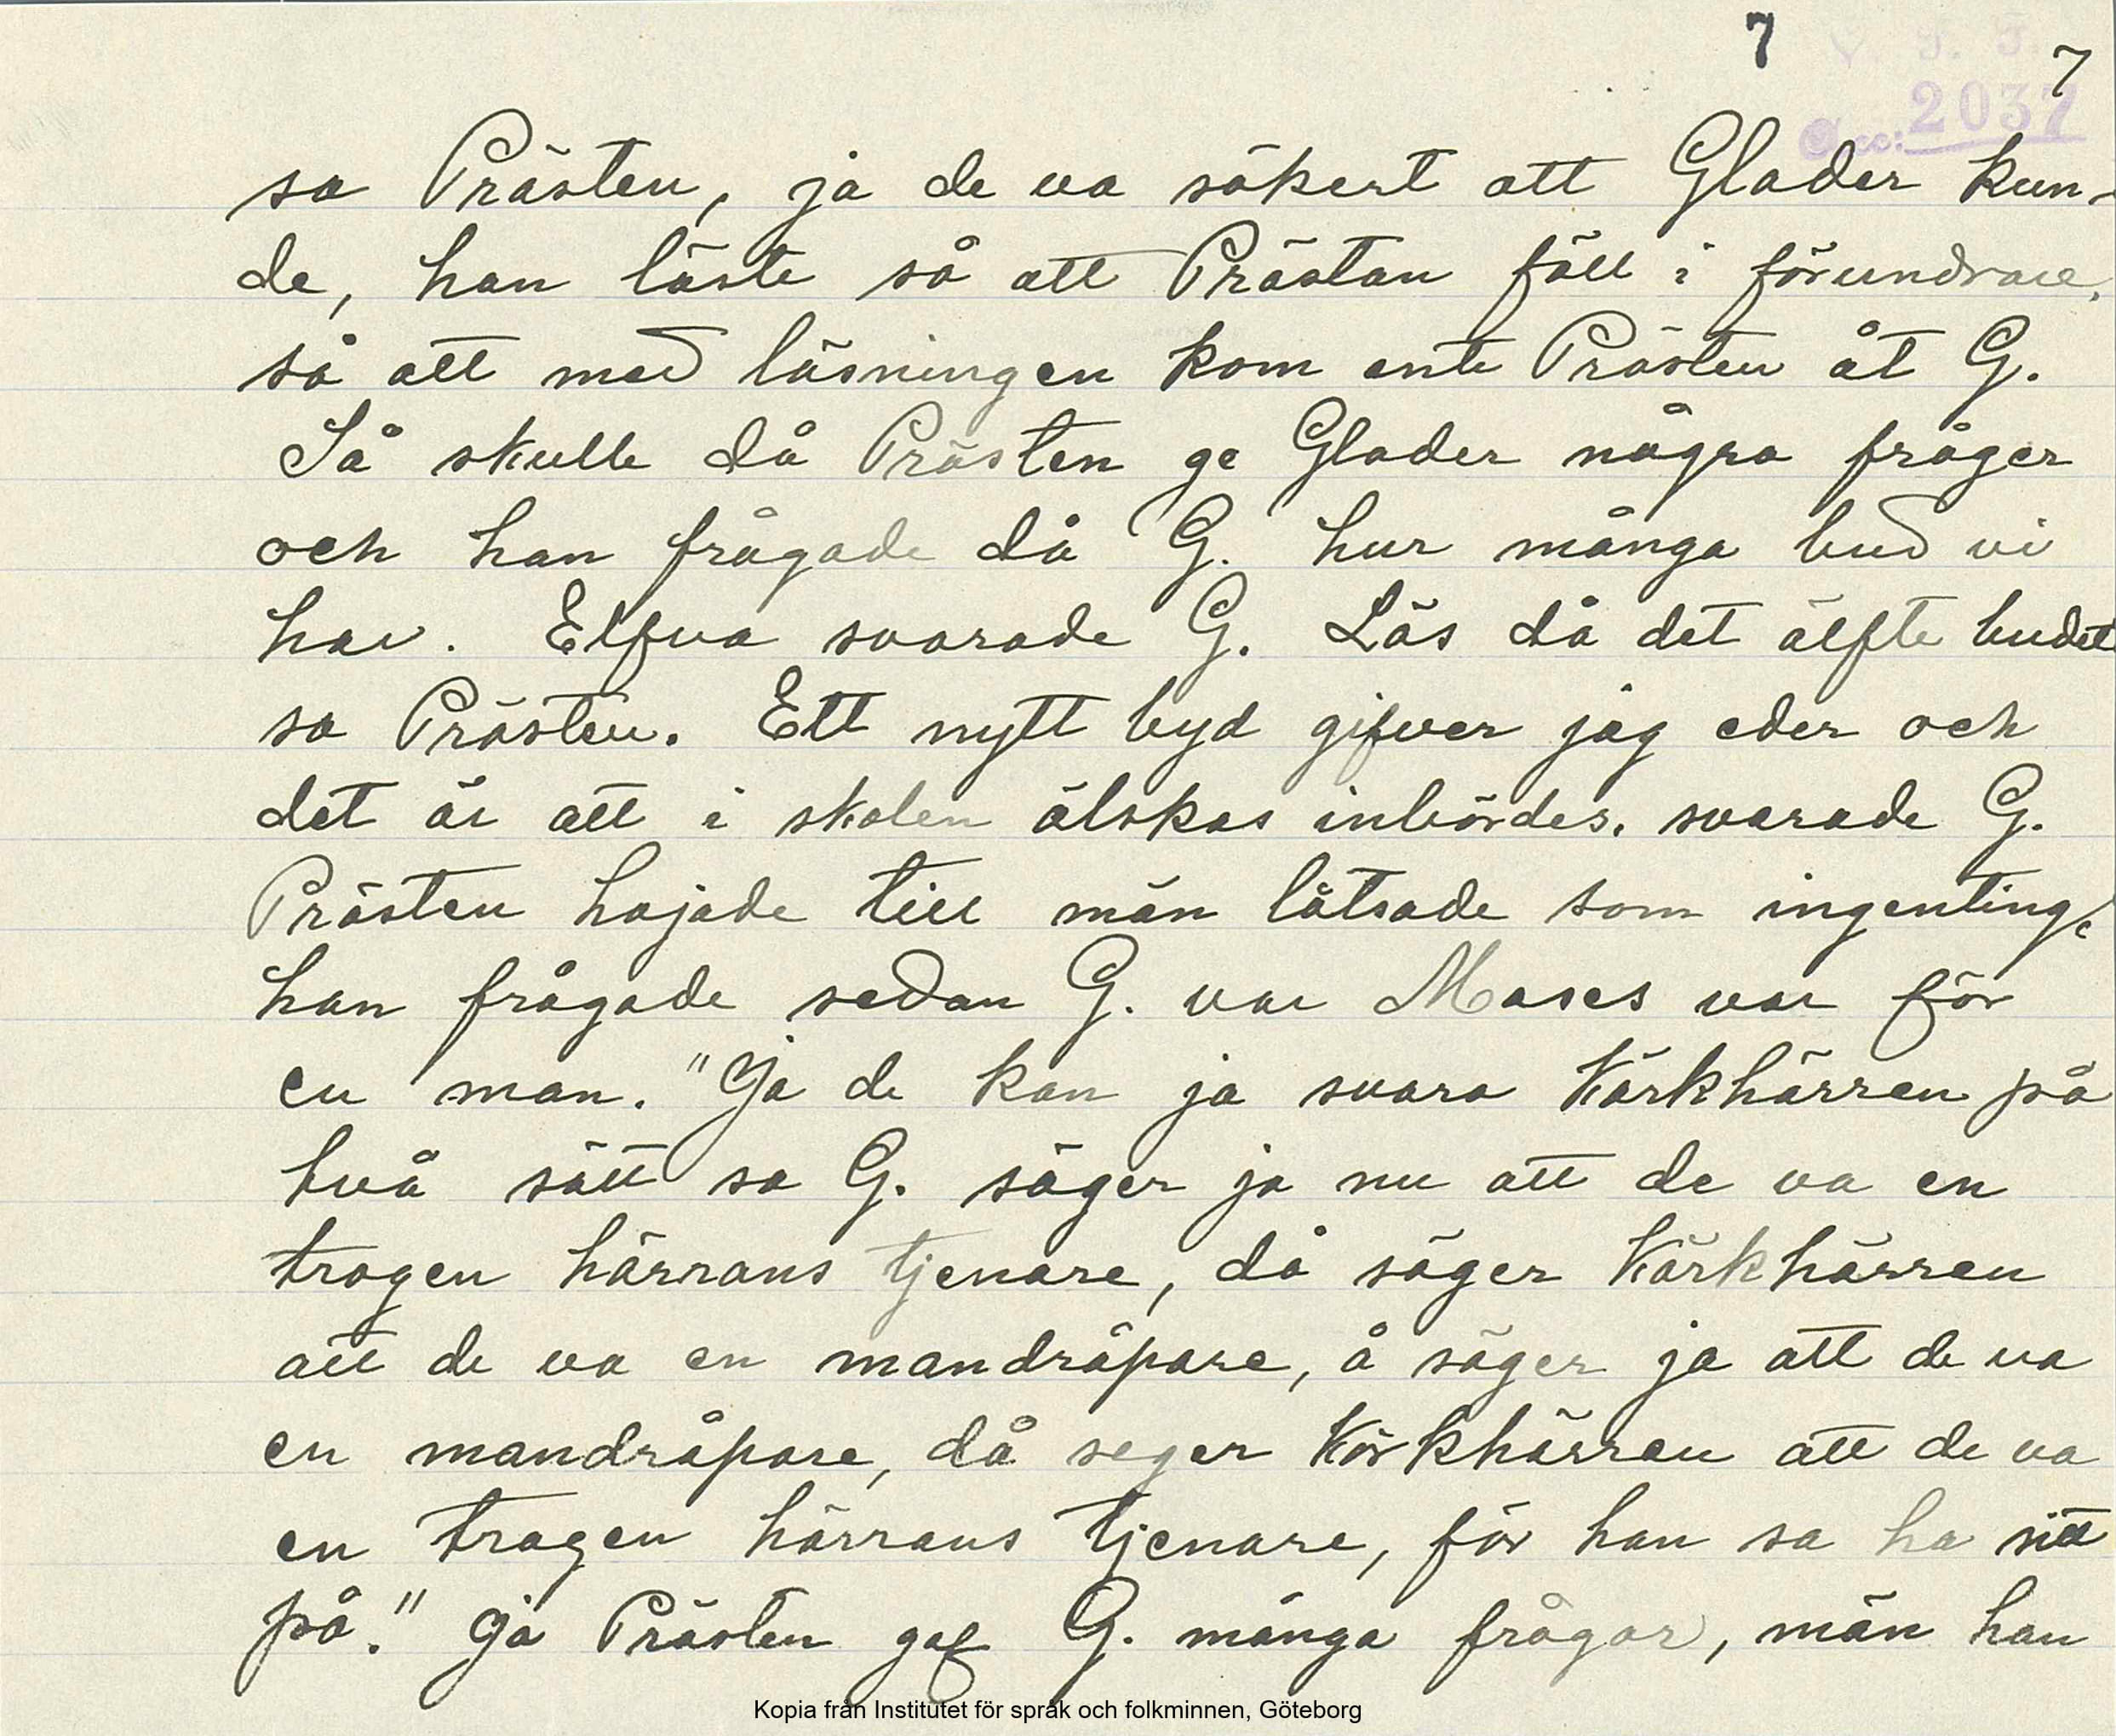 7
7
V. G. F.
Acc: 2037
sa Prästen, ja de va säkert att Glader kun-
de, han läste så att Prästan föll i förundran,
så att med läsningen kom ente Prästen åt G.
Så skulle då Prästen ge Glader några fråger
och han frågade då G. hur många bud vi
har. Elfva svarade G. Läs då det älfte budet
sa Prästen. Ett nytt byd gifver jag eder och
det är att i skolen älskas inbördes. svarade G.
Prästen hajade till män låtsade som ingenting,
han frågade sedan G. var Moses var för
en man. "Ja de kan ja svara Kärkhärren på
två sätt sa G. säger ja nu att de va en
trogen härrans tjenare, då säger Kärkhärren
att de va en mandråpare, å säger ja att de va
en mandråpare, då seger Körkhärren att de va
en trogen härrans tjenare, för han sa ha sitt
på." Ja Prästen gaf G. många frågor, män han
Kopia från Institutet för språk och folkminnen, Göteborg